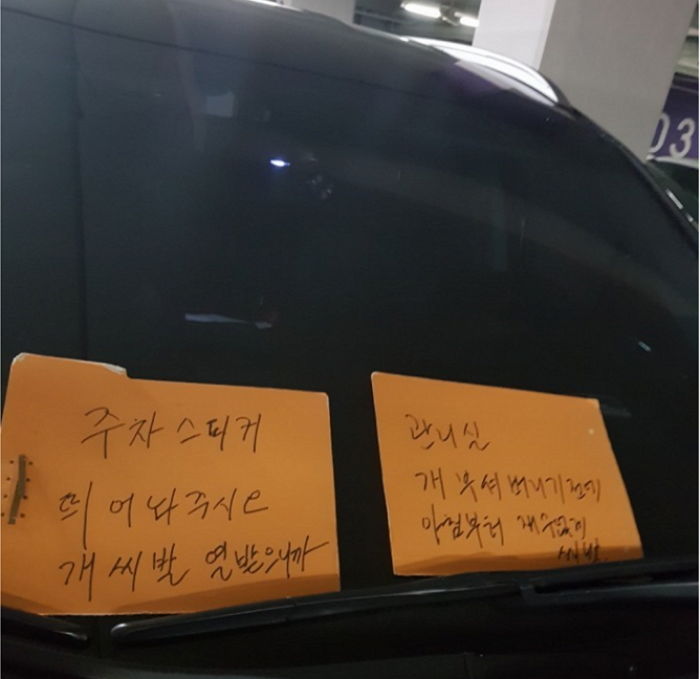 주차스티커
띄어놔주시오
개씨발 열받으니까
관리실
개부셔버리기전에
아침부터 재수없이
씨발
03